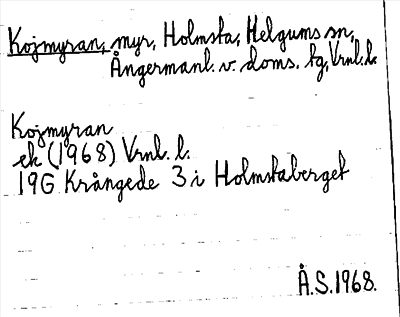 Kojmyran, myr, Holmsta, Helgums sn,
Ångermanl. v. doms. tg, Vrnl. l.
Kojmyran
ek (1968) Vrnl. l.
19G Krångede 3 i Holmstaberget
Å.S. 1968.